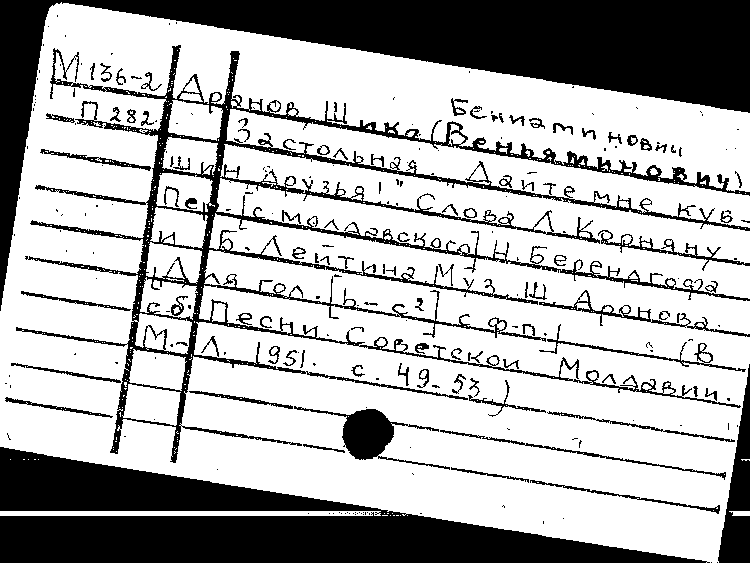 Бениаминович
М 136-2 Аронов, Шика (Веньяминович)
П 282 Застольная. "Дайте мне кув-
шин друзья!.." Слова Л. Корняну.
Пер. [с молдавского] Н. Берендгофа
и Б. Лейтина Муз. Ш. Аронова.
[Для гол. [h-c²] с ф-п.] (В
сб: Песни Советской Молдавии.
М.-Л., 1951. с. 49-53.)